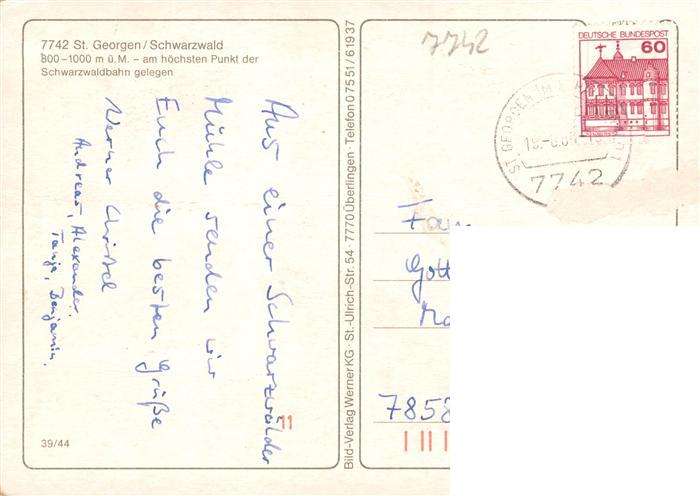 7742 St. Georgen / Schwarzwald
800–1000 m ü. M. – am höchsten Punkt der
Schwarzwaldbahn gelegen
Aus einer Schwarzwälder
Mühle senden wir
Euch die besten Grüße
Werner Christel
Andreas, Alexander,
Tanja, Benjamin.
39/44
11
Bild-Verlag Werner KG · St.-Ulrich-Str. 54 · 7770 Überlingen · Telefon 0 75 51 / 6 19 37
7742
DEUTSCHE BUNDESPOST
60
ST GEORGEN IM
7742
Fam
Gott
7858